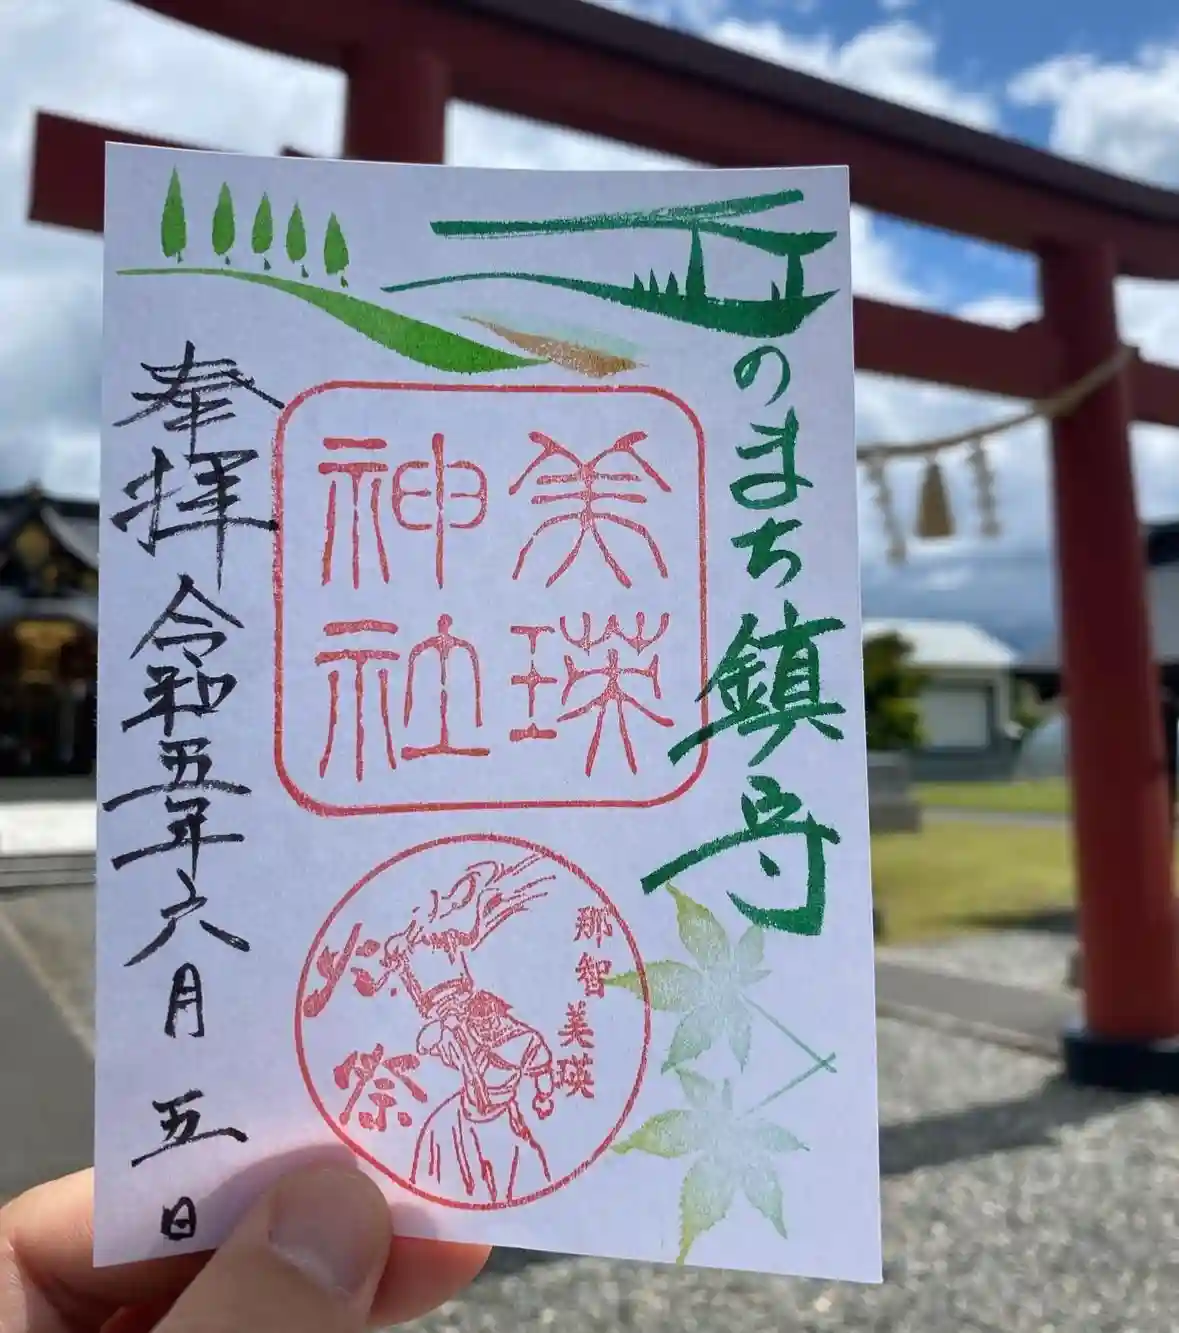 丘のまち鎮守
美瑛
神社
那智美瑛
火祭
奉拝 令和五年六月五日